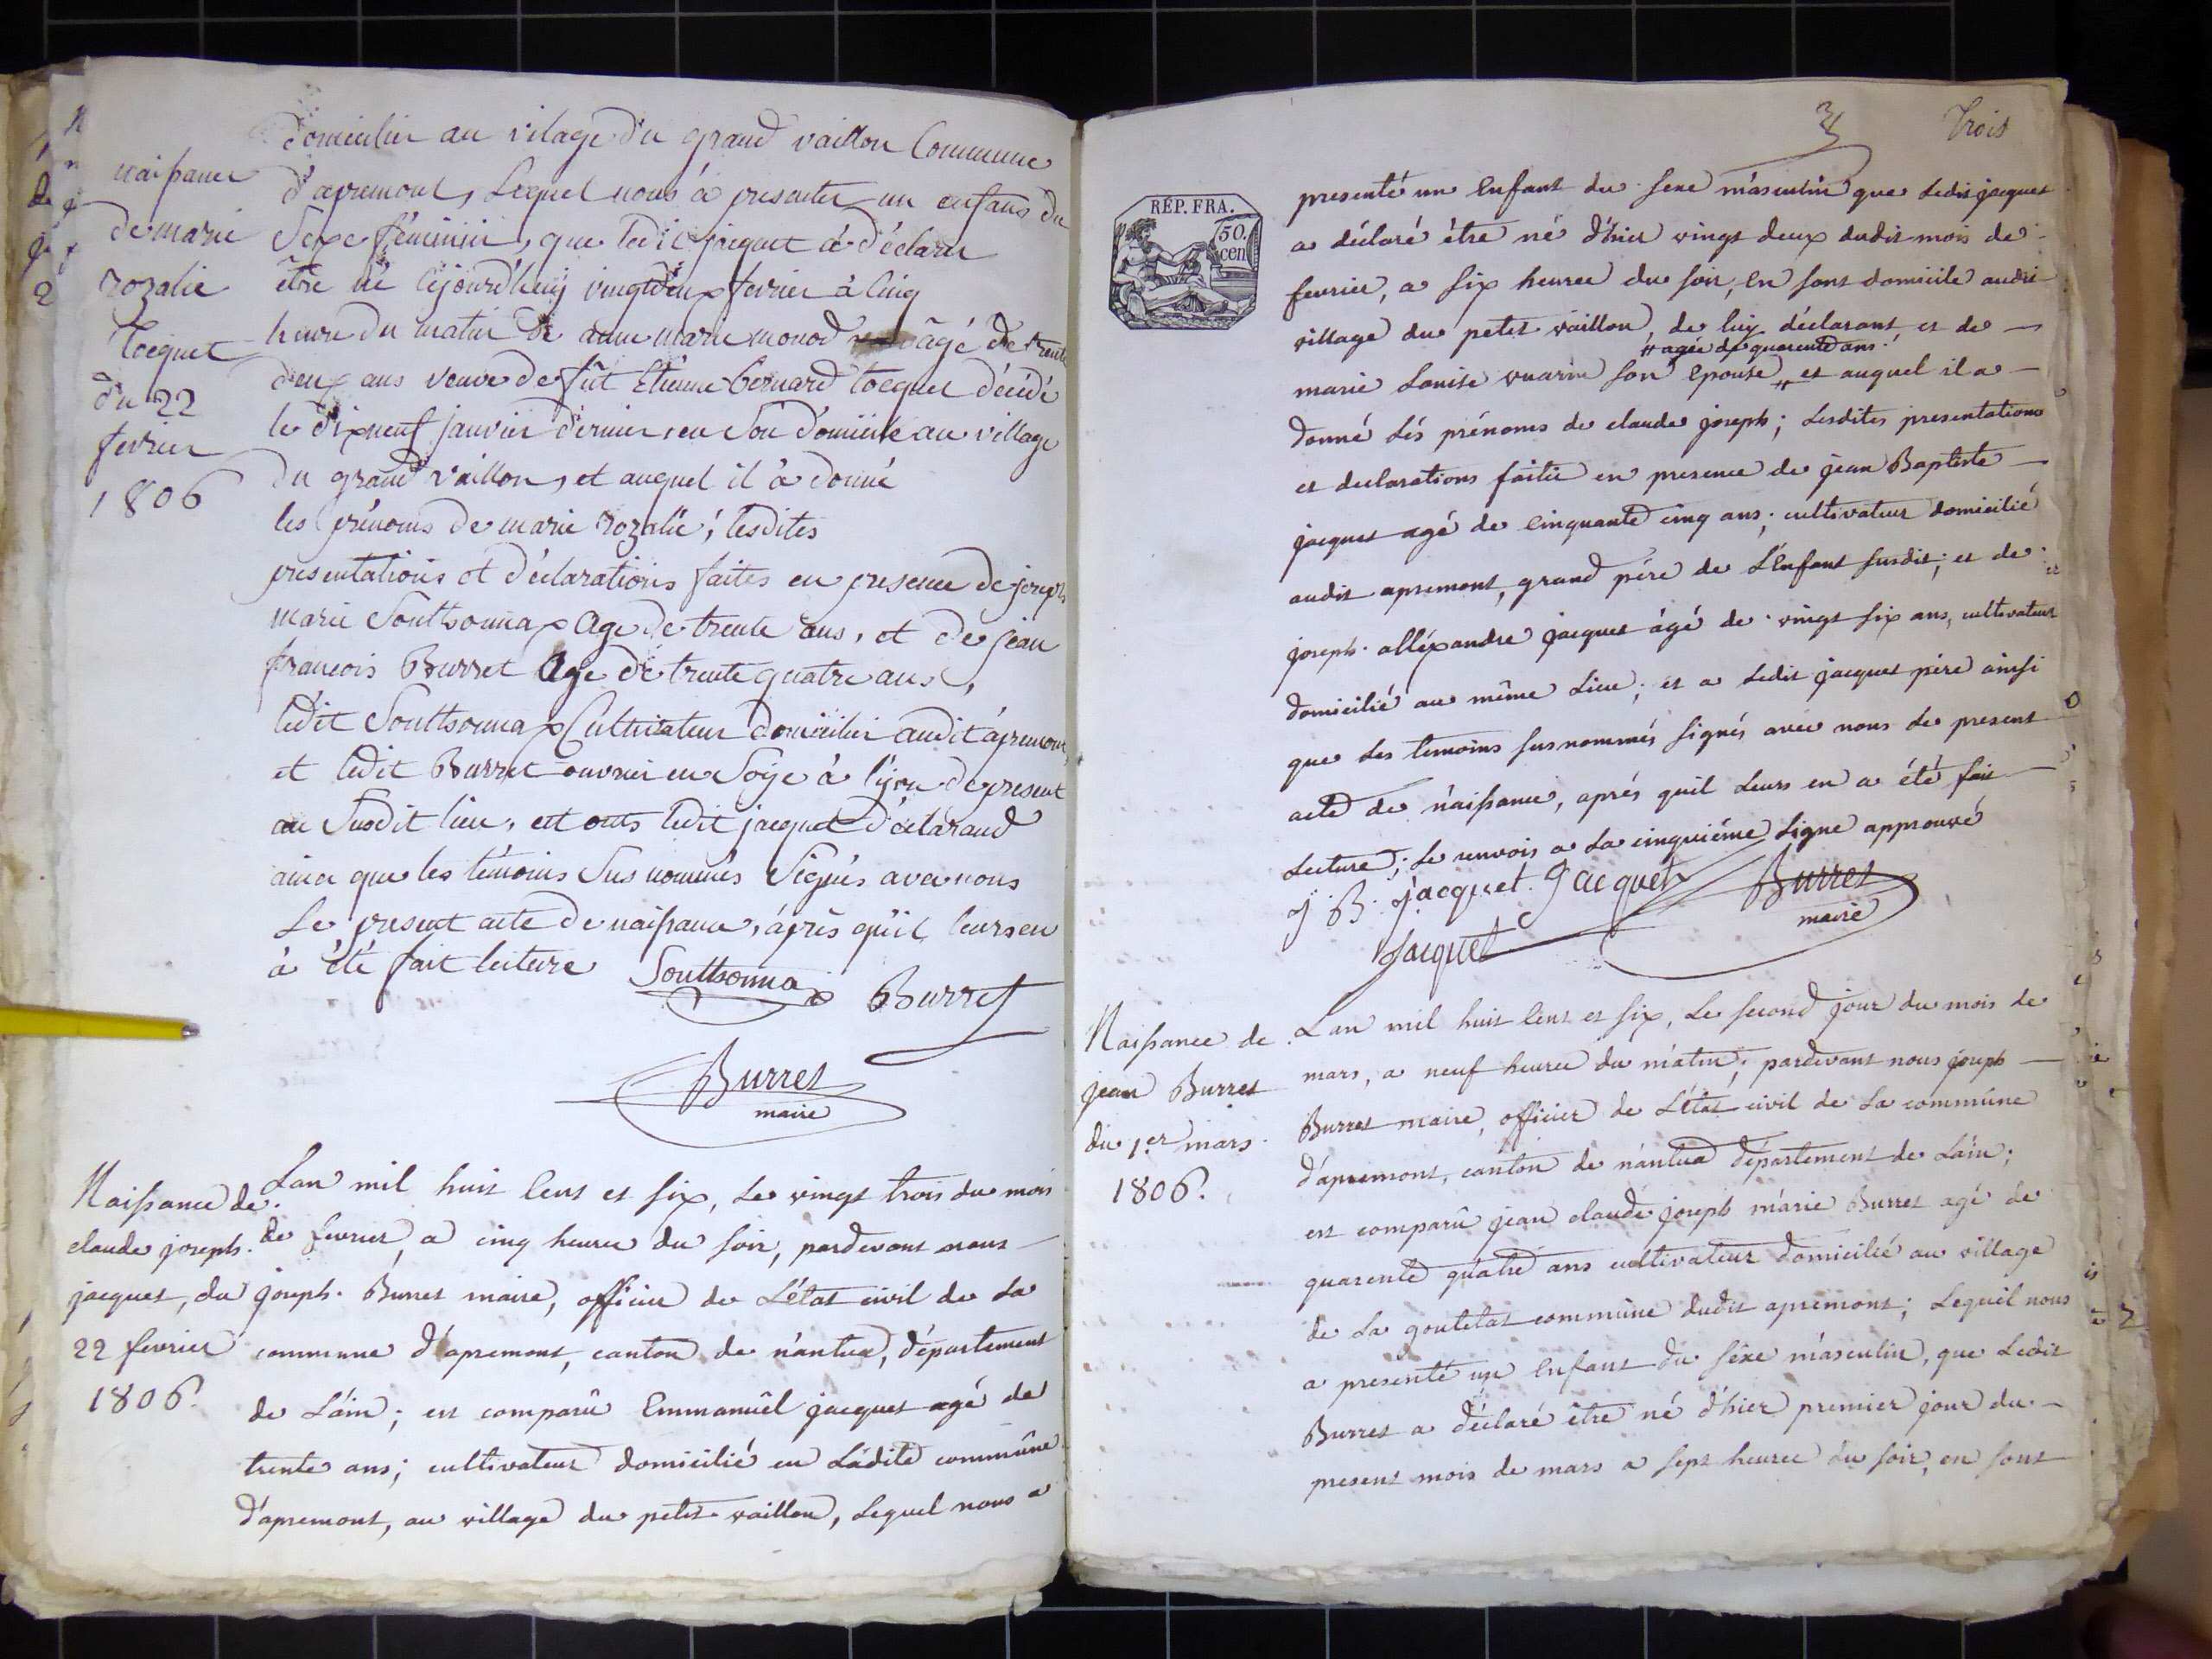 naissance
de marie
rozalie
tocquet
du 22
fevrier
1806
domicilier au vilage du grand vaillon Commune
d'apremont, Lequel nous à presenter un enfans du
Sexe féminin, que ledit jacquet à déclaré
être né cejourd'huij vingtdeux fevrier à cinq
heure du matin de anne marie monod âgé de trente
deux ans veuve de fût Etienne bernard tocquet décédé
le dixneuf janvier dernier, en Son domicile au village
du grand vaillon, et auquel il à donné
les prénoms de marie rozalie; lesdites
presentations et déclarations faites en presence de joseph
marie Southonnax Age de trente ans, et de jean
francois Burret Age de trente quatre ans,
ledit Southonnax Cultivateur domicilier audit apremont,
et ledit Burret ouvrier en Soije à lijon de present
au Susdit lieu, et onts ledit jacquet déclarand
ainci que les témoins Sus nommés Signés avec nous
Le present acte de naissance, après qu'il leurs en
à été fait lecture
Southonnax Burret
Burret
maire
Naissance de
claude joseph.
jacquet, du
22 fevrier
1806.
Lan mil huit cent et six, le vingt trois du mois
de fevrier, a cinq heures du soir, pardevant nous
joseph. Burret maire, officier de L'état civil de La
commune d'apremont, canton de nántua, département
de L'áin; est comparû Emmanûel jacquet agé de
trente ans; cultivateur domicilié en Ládite commûne
d'apremont, au village du petit vaillon, Lequel nous a
3
Trois
RÉP. FRA.
50.
cen
presenté un Enfant du sexe másculin que Ledit jacquet
a déclaré être né d'hier vingt deux dudit mois de
fevrier, a six heures du soir, en sont domicile audit
village du petit vaillon, de luy déclarant et de
" agée de quarente ans.
marie Louise vuarin son epouse " et auquel il a
donné Lés prénoms de claude joseph; Lesdites presentations
et declarations faitte en presence de jean Baptiste
jacquet agé de cinquante cinq ans; cultivateur domicilié
audit apremont, grand pére de L'Enfant susdit; et de
joseph. alléxandre jacquet ágé de vingt six ans, cultivateur
domicilié au même Lieu; et a Ledit jacquet pére ainsi
que Les temoins susnommés signés avec nous Le present
acte de náissance, aprés quil Leurs en a été fait
Lecture; Le renvois a La cinquiéme Ligne approuvé
J. B. jacquet. Jacquet Burret
maire
Jacquet
Naissance de
jean Burret
du 1.er mars
1806.
Lan mil huit cent et six, Le second jour du mois de
mars, a neuf heures du mátin; pardevant nous joseph
Burret maire, officier de L'état civil de La commûne
d'apremont, canton de nántua département de Láin;
est comparû jean claude joseph márie Burret agé de
quarente quatre ans cultivateur domicilié au village
de La goutetat commûne dudit apremont; Lequel nous
a presenté un Enfant du séxe másculin, que Ledit
Burret a déclaré être né d'hier premier jour du
present mois de mars a sept heures du soir, en sont